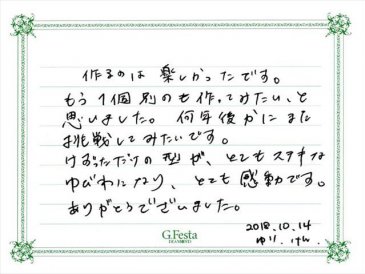 作るのは楽しかったです。
もう1個別のも作ってみたい、と
思いました。何年後かにまた
挑戦してみたいです。
けずっただけの型が、とてもステキな
ゆびわになり、とても感動です。
ありがとうございました。
2018.10.14
ゆり、けん.
G.Festa
DIAMOND